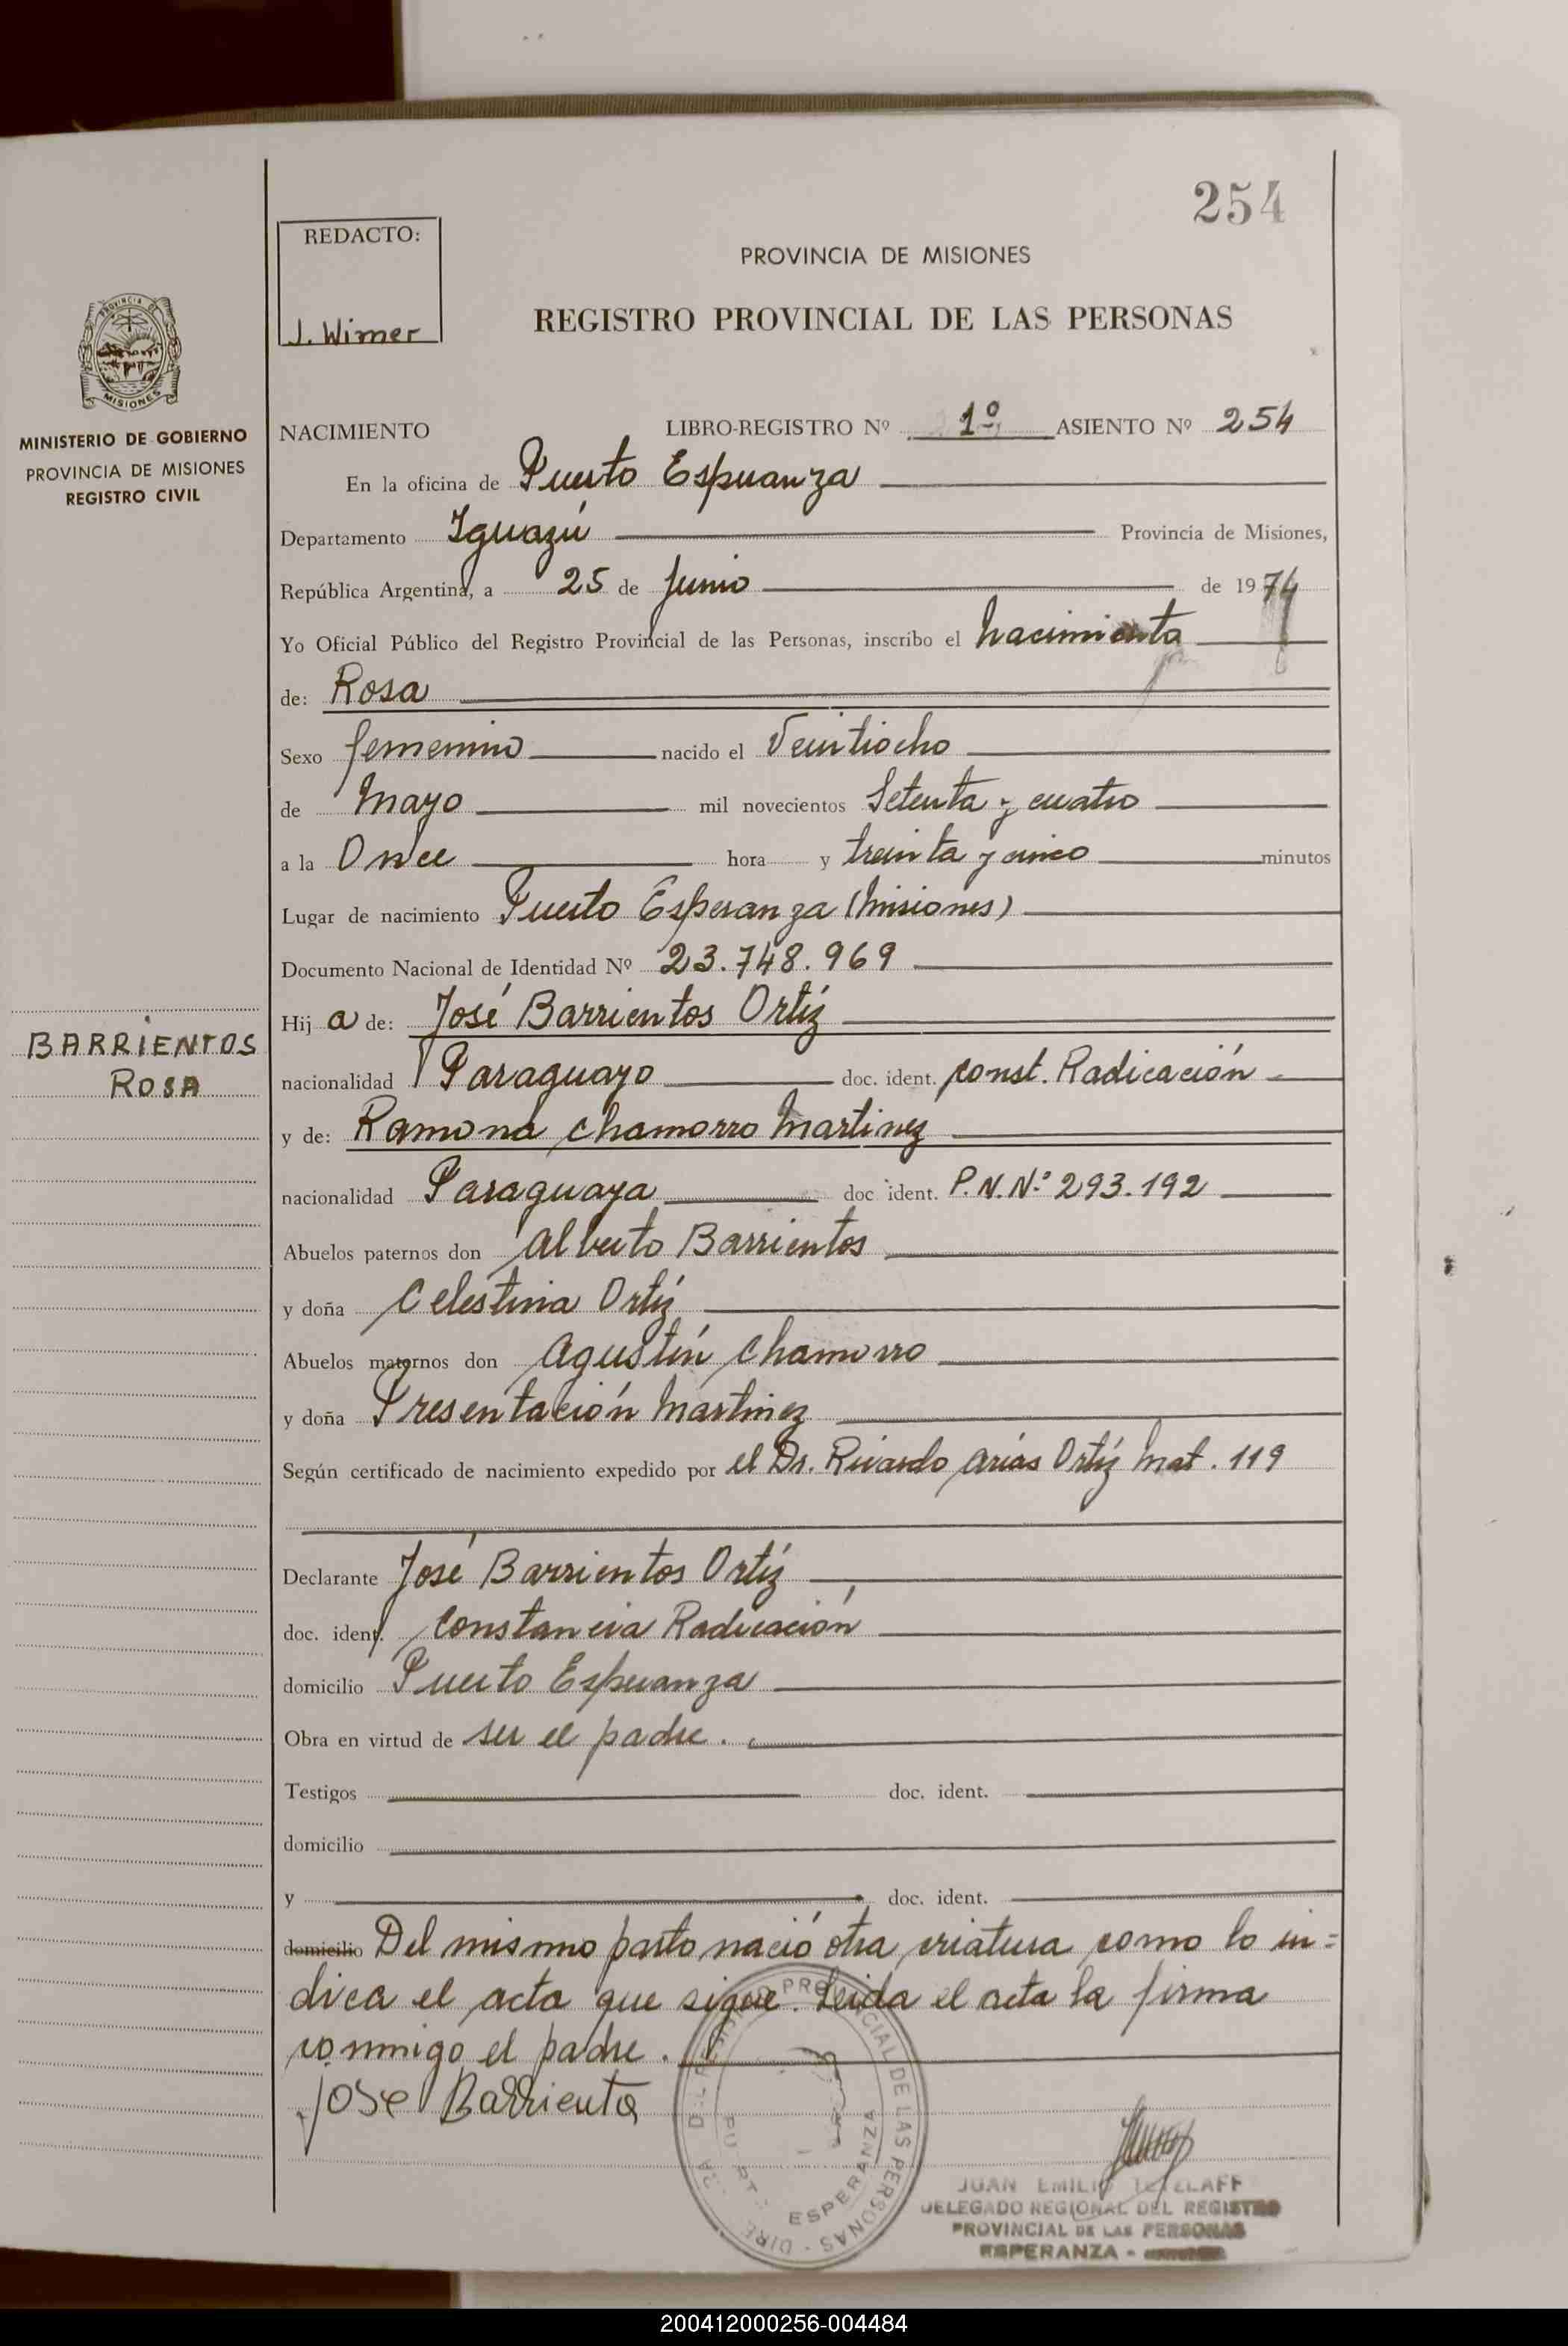 254
REDACTO:
J. Wimer
PROVINCIA DE MISIONES
REGISTRO PROVINCIAL DE LAS PERSONAS
PROVINCIA DE
MISIONES
MINISTERIO DE GOBIERNO
PROVINCIA DE MISIONES
REGISTRO CIVIL
NACIMIENTO LIBRO-REGISTRO Nº 1º ASIENTO Nº 254
En la oficina de Puerto Esperanza
Departamento Iguazú Provincia de Misiones,
República Argentina, a 25 de Junio de 1974
Yo Oficial Público del Registro Provincial de las Personas, inscribo el nacimiento
de: Rosa
Sexo femenino nacido el Veintiocho
de Mayo mil novecientos Setenta y cuatro
a la Once hora y treinta y cinco minutos
Lugar de nacimiento Puerto Esperanza (Misiones)
Documento Nacional de Identidad Nº 23.748.969
Hij a de: José Barrientos Ortíz
BARRIENTOS
ROSA
nacionalidad Paraguayo doc. ident. const. Radicación
y de: Ramona Chamorro Martinez
nacionalidad Paraguaya doc ident. P.N.Nº 293.192
Abuelos paternos don Alberto Barrientos
y doña Celestina Ortíz
Abuelos maternos don Agustín Chamorro
y doña Presentación Martinez
Según certificado de nacimiento expedido por el Dr. Ricardo Arias Ortíz Mat. 119
Declarante José Barrientos Ortíz
doc. ident. Constancia Radicación
domicilio Puerto Esperanza
Obra en virtud de ser el padre.
Testigos doc. ident.
domicilio
y doc. ident.
domicilio Del mismo parto nació otra criatura como lo in=
dica el acta que sigue. Leida el acta la firma
conmigo el padre.
Jose Barrientos
PROVINCIAL DE LAS PERSONAS
ESPERANZA
JUAN EMILIO TETZLAFF
DELEGADO REGIONAL DEL REGISTRO
PROVINCIAL DE LAS PERSONAS
ESPERANZA -
200412000256-004484